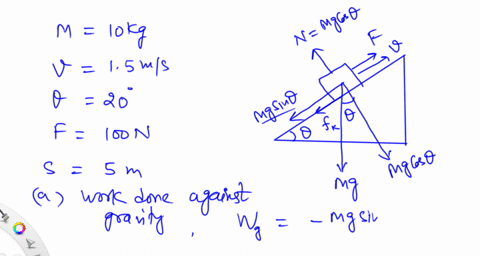 M = 10kg
v = 1.5 m/s
θ = 20°
F = 100N
S = 5 m
(a) work done against
gravity, Wg = - Mg sin
N = Mg cosθ
F
v
Mg sinθ
fk
θ
θ
Mg
Mg cosθ